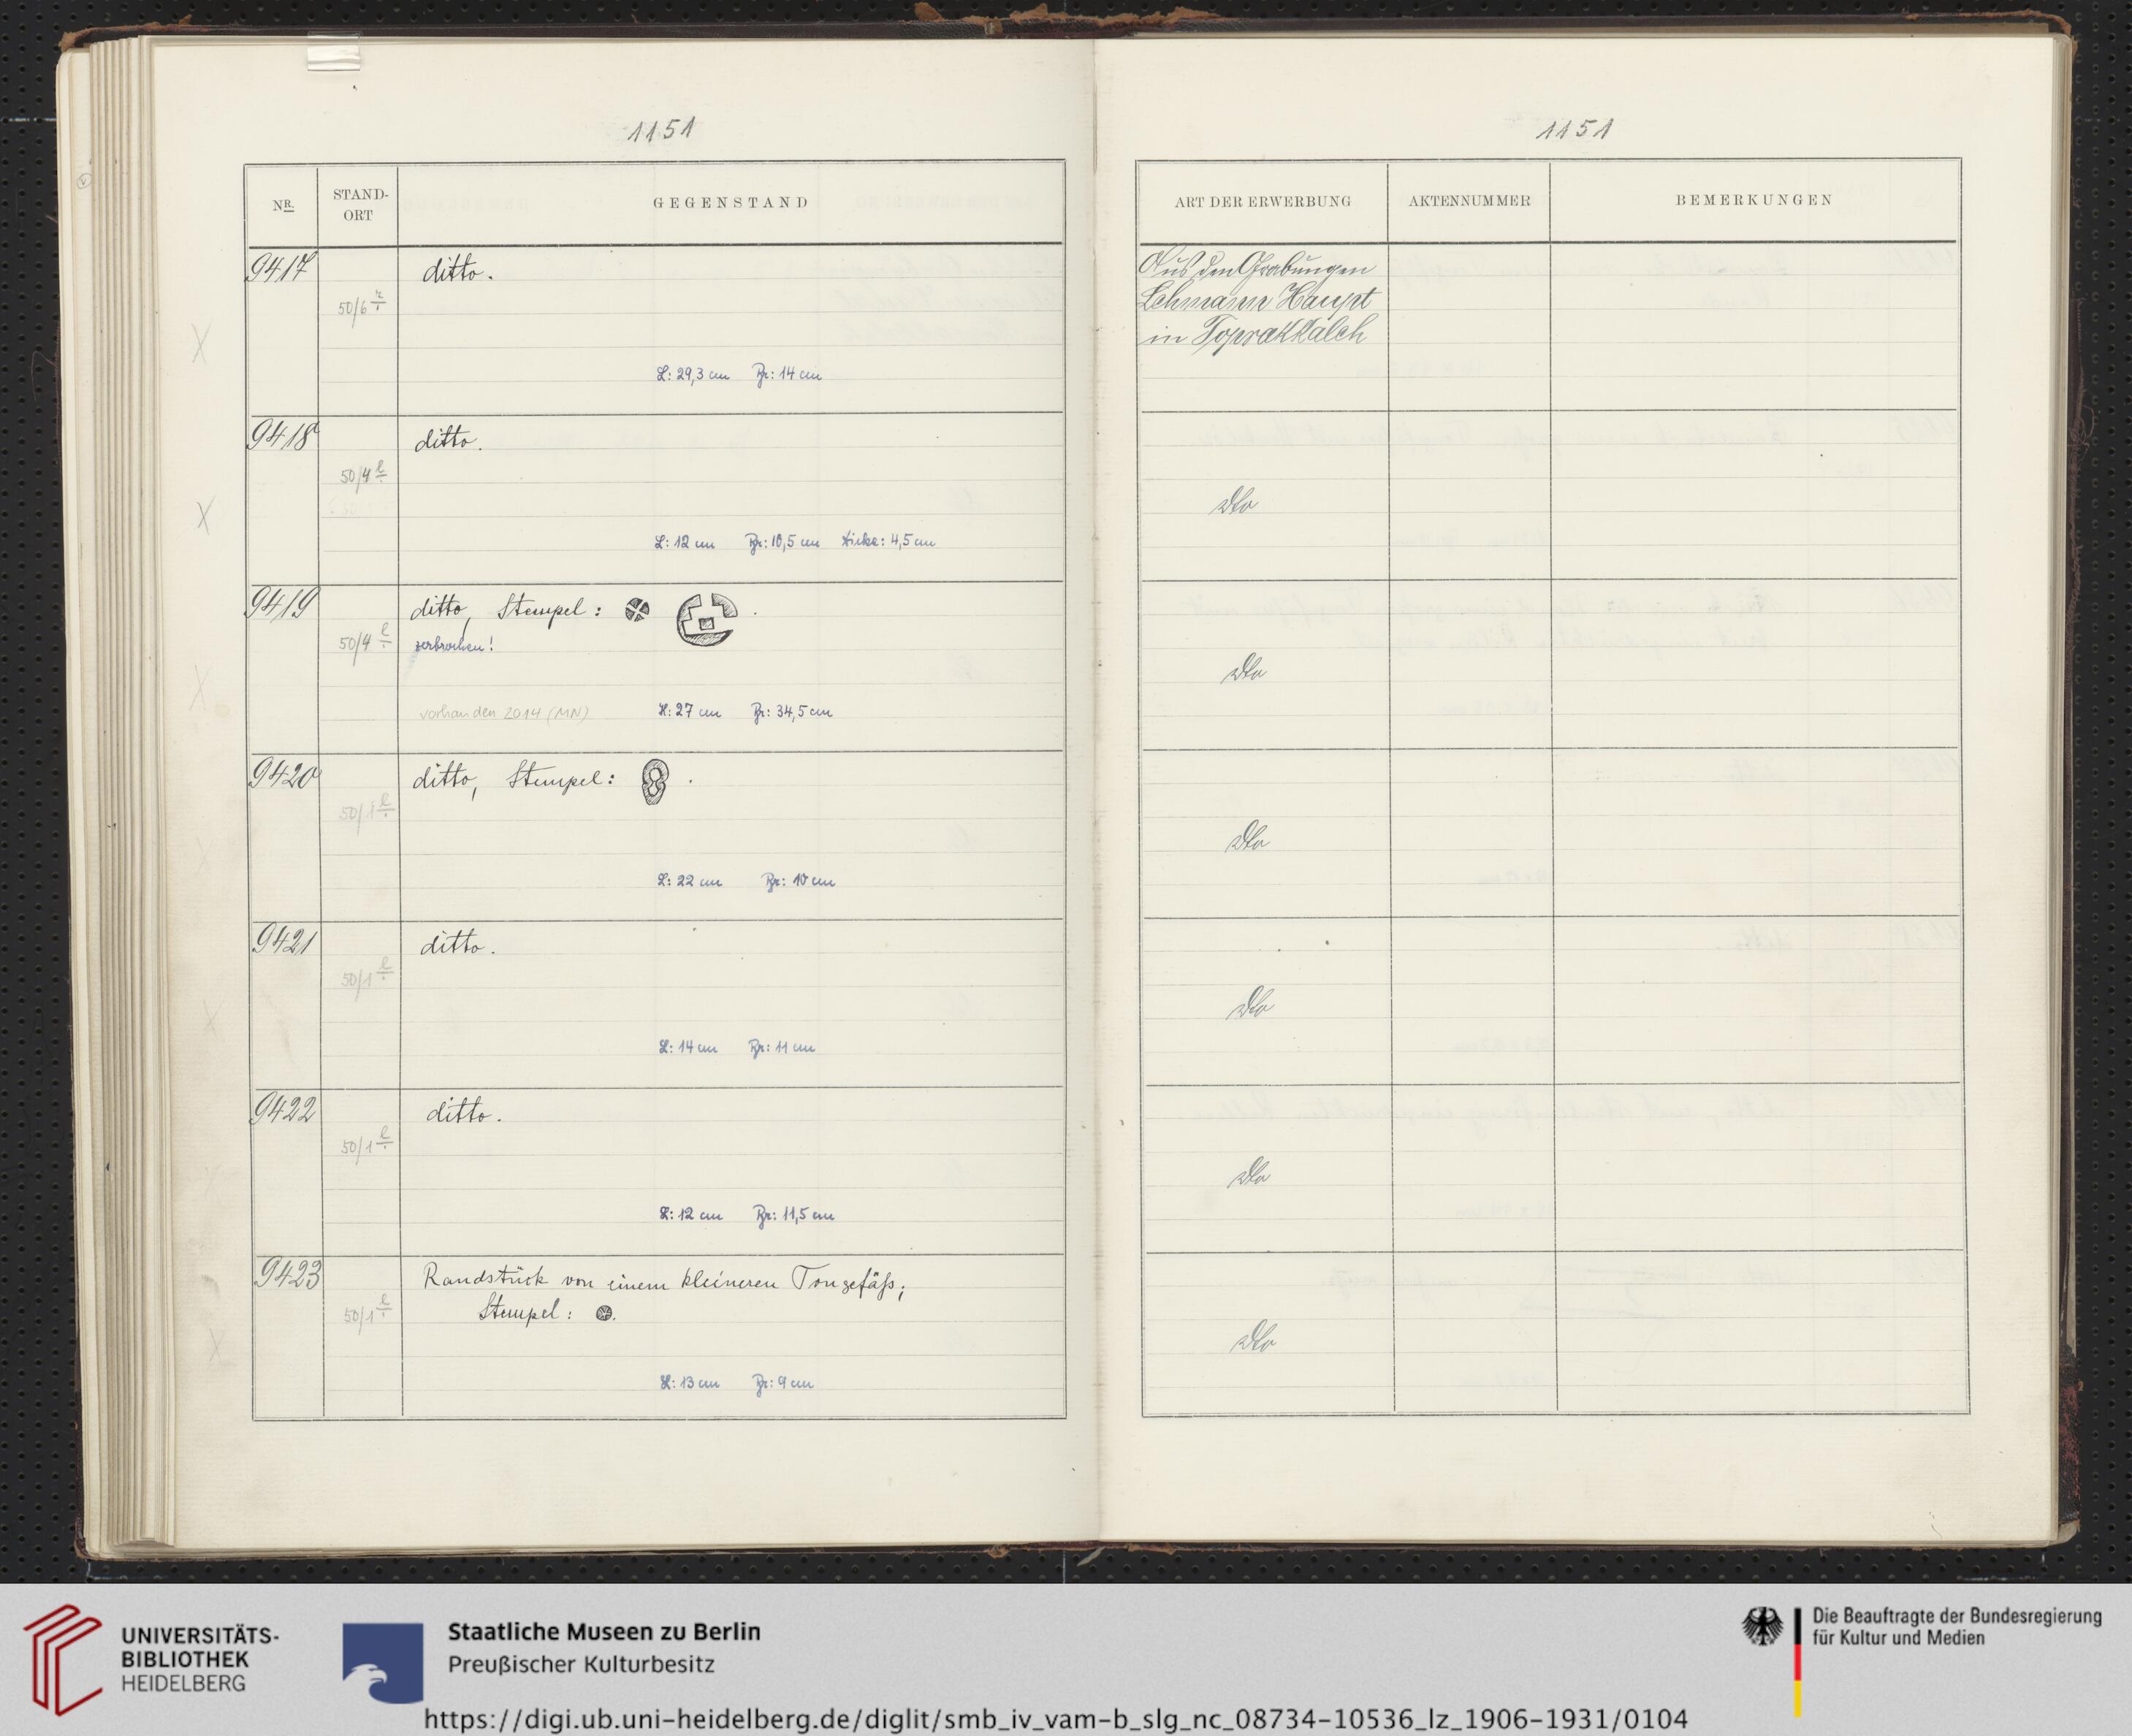 1151
NR.
STAND-
ORT
GEGENSTAND
9417
ditto.
50/6
L: 29,3 cm Br: 14 cm
9418
ditto.
50/4 l
L: 12 cm Br: 10,5 cm Dicke: 4,5 cm
9419
ditto, Stempel: .
50/4 l
zerbrochen!
vorhanden 2014 (MN) H: 27 cm Br: 34,5 cm
9420
ditto, Stempel: .
50/1 l
L: 22 cm Br: 10 cm
9421
ditto.
50/1 l
L: 14 cm Br: 11 cm
9422
ditto.
50/1 l
L: 12 cm Br: 11,5 cm
9423
Randstück von einem kleineren Tongefäß;
50/1 l
Stempel: .
L: 13 cm Br: 9 cm
1151
ART DER ERWERBUNG
AKTENNUMMER
BEMERKUNGEN
Aus den Grabungen
Lehmann Haupt
in Toprakkaleh
dto
dto
dto
dto
dto
dto
UNIVERSITÄTS-
BIBLIOTHEK
HEIDELBERG
Staatliche Museen zu Berlin
Preußischer Kulturbesitz
Die Beauftragte der Bundesregierung
für Kultur und Medien
https://digi.ub.uni-heidelberg.de/diglit/smb_iv_vam-b_slg_nc_08734-10536_lz_1906-1931/0104